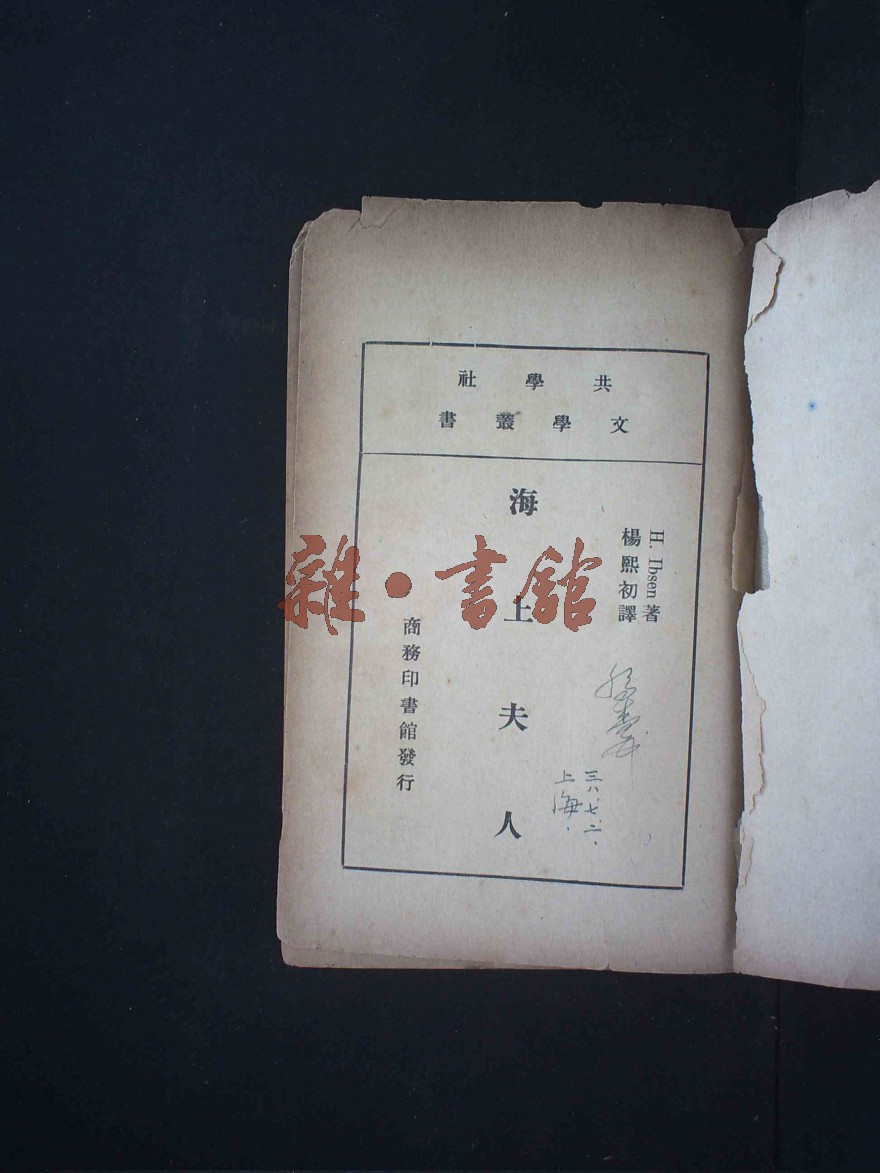 共學社
文學叢書
H. Ibsen 著
楊熙初譯
海上夫人
商務印書館發行
三八、七、二、
上海.
雜·書館